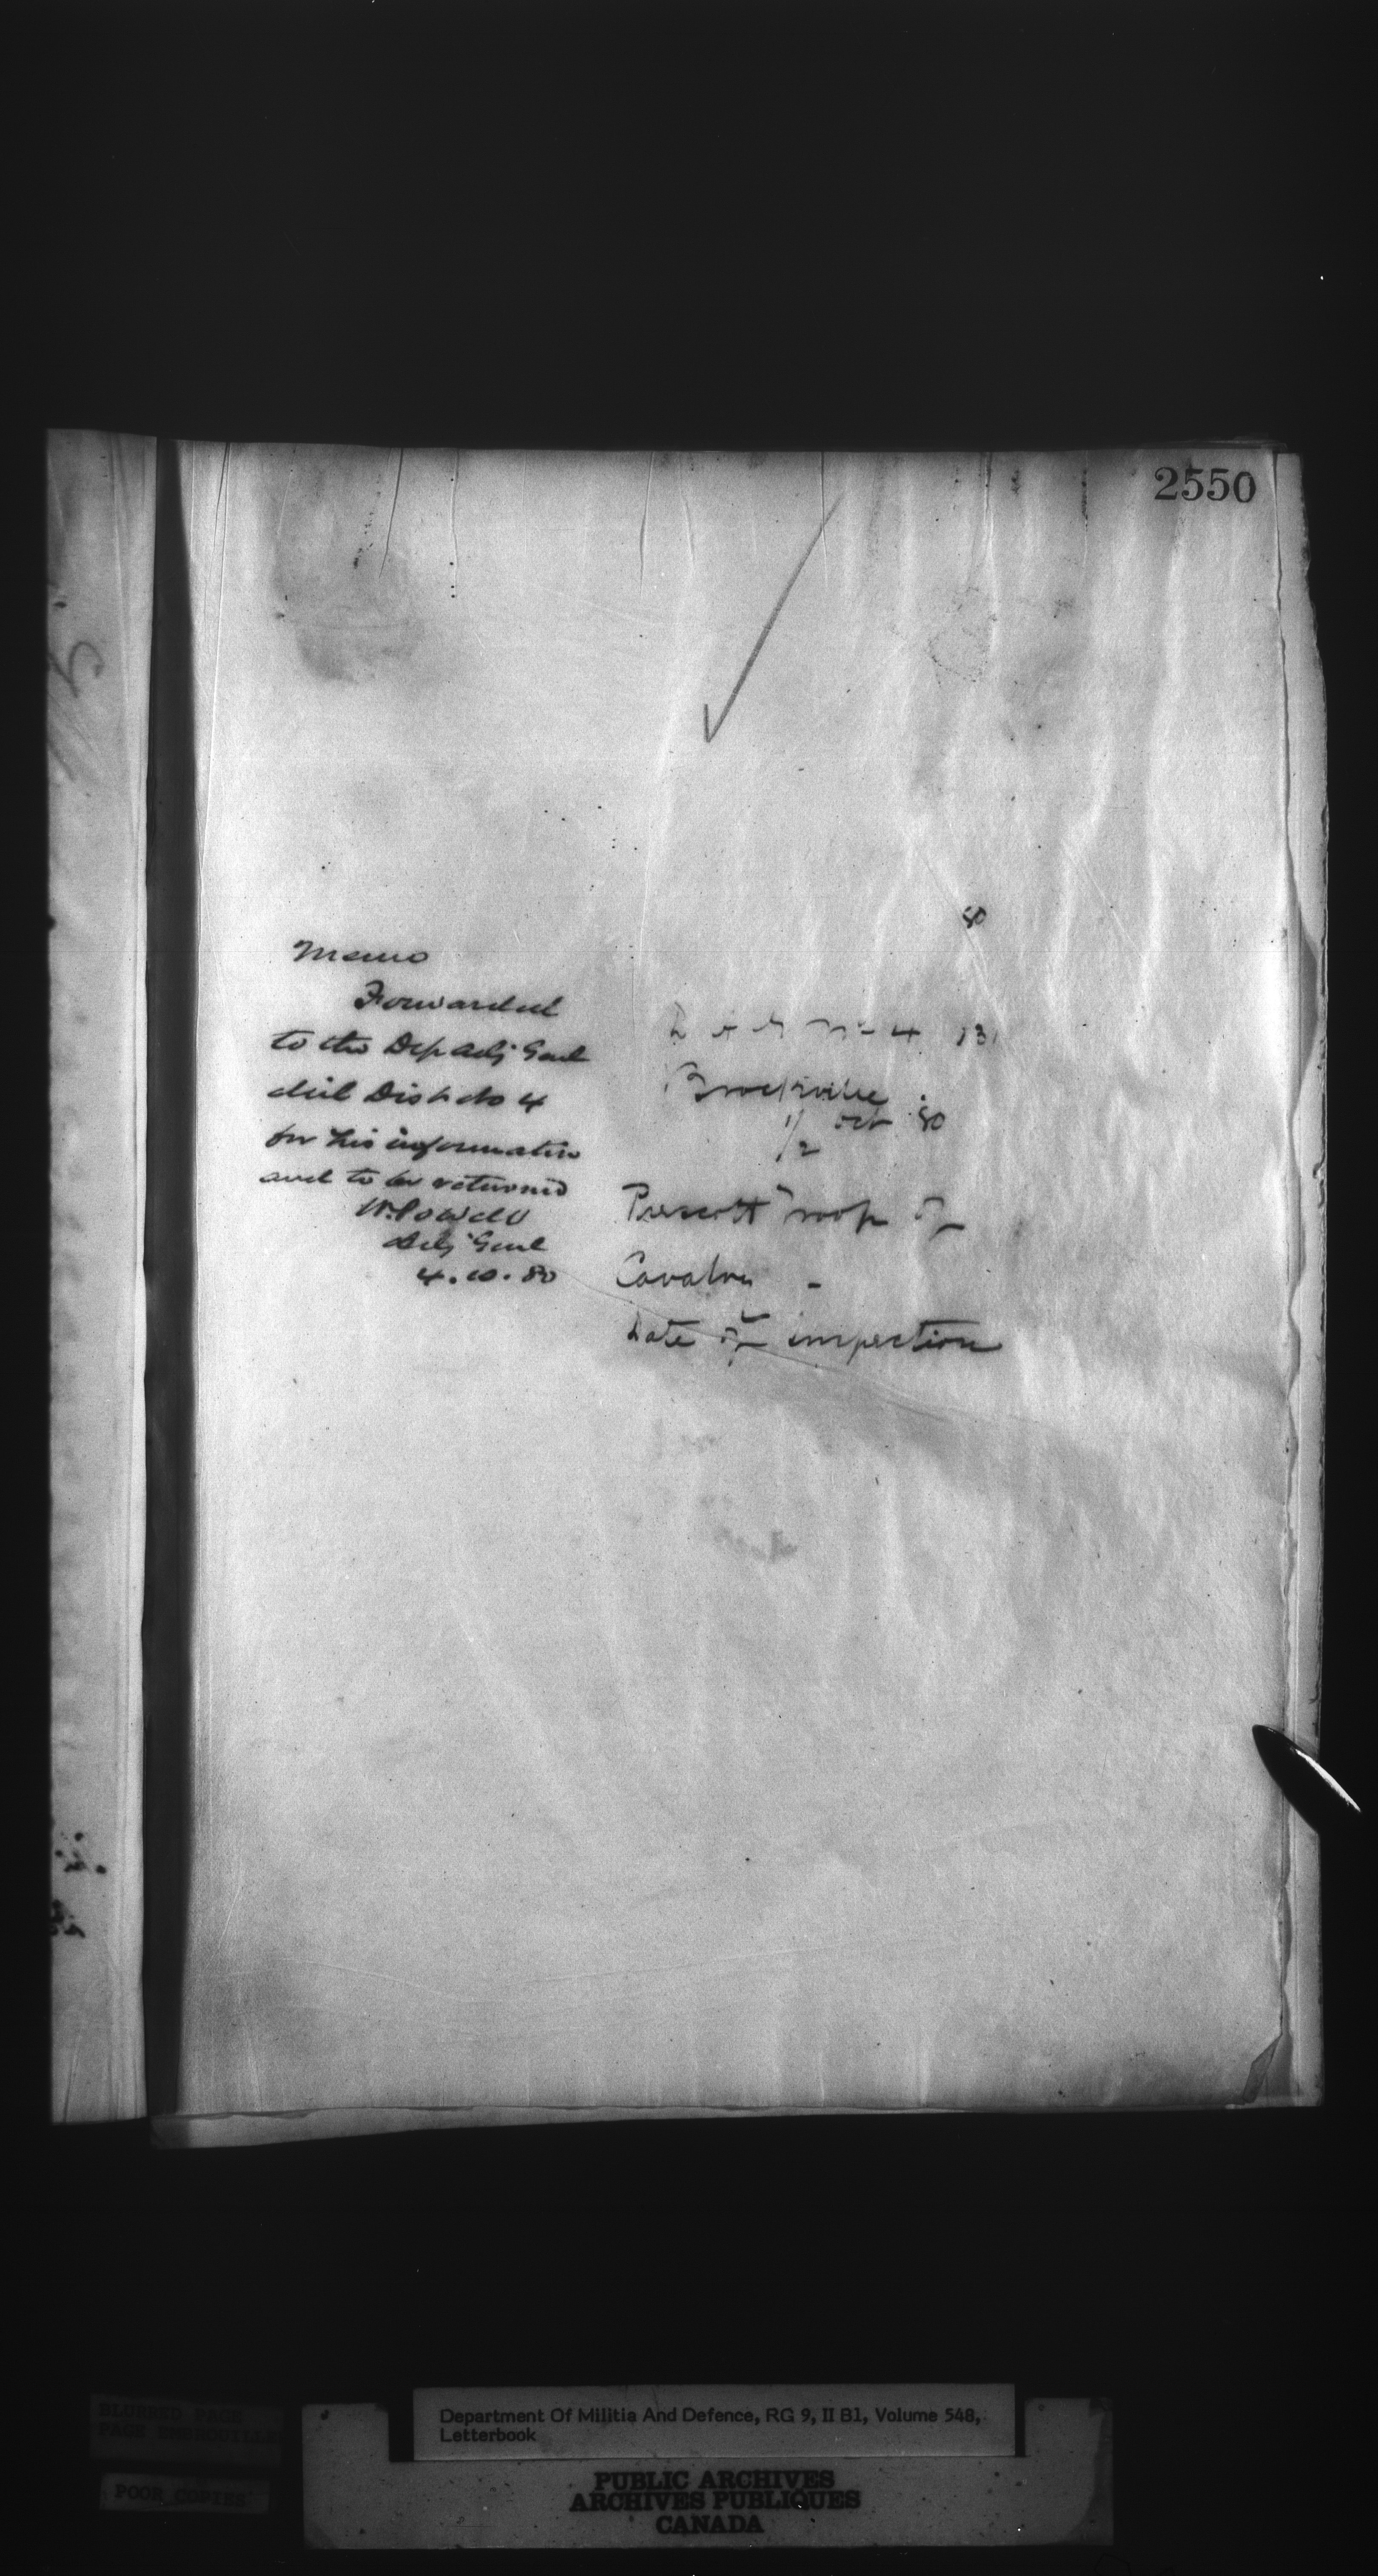 2550
80
Memo
Forwarded
to the Dep Adj Genl
Mil Dist No 4
for his information
and to be returned
W. Powell
Adj Genl
4.10.80
No 4 131
Brockville
1/2 Oct 80
Prescott Troop of
Cavalry -
Date of inspection
Department Of Militia And Defence, RG 9, II B1, Volume 548,
Letterbook
BLURRED PAGE
PAGE
POOR COPIES
PUBLIC ARCHIVES
ARCHIVES PUBLIQUES
CANADA